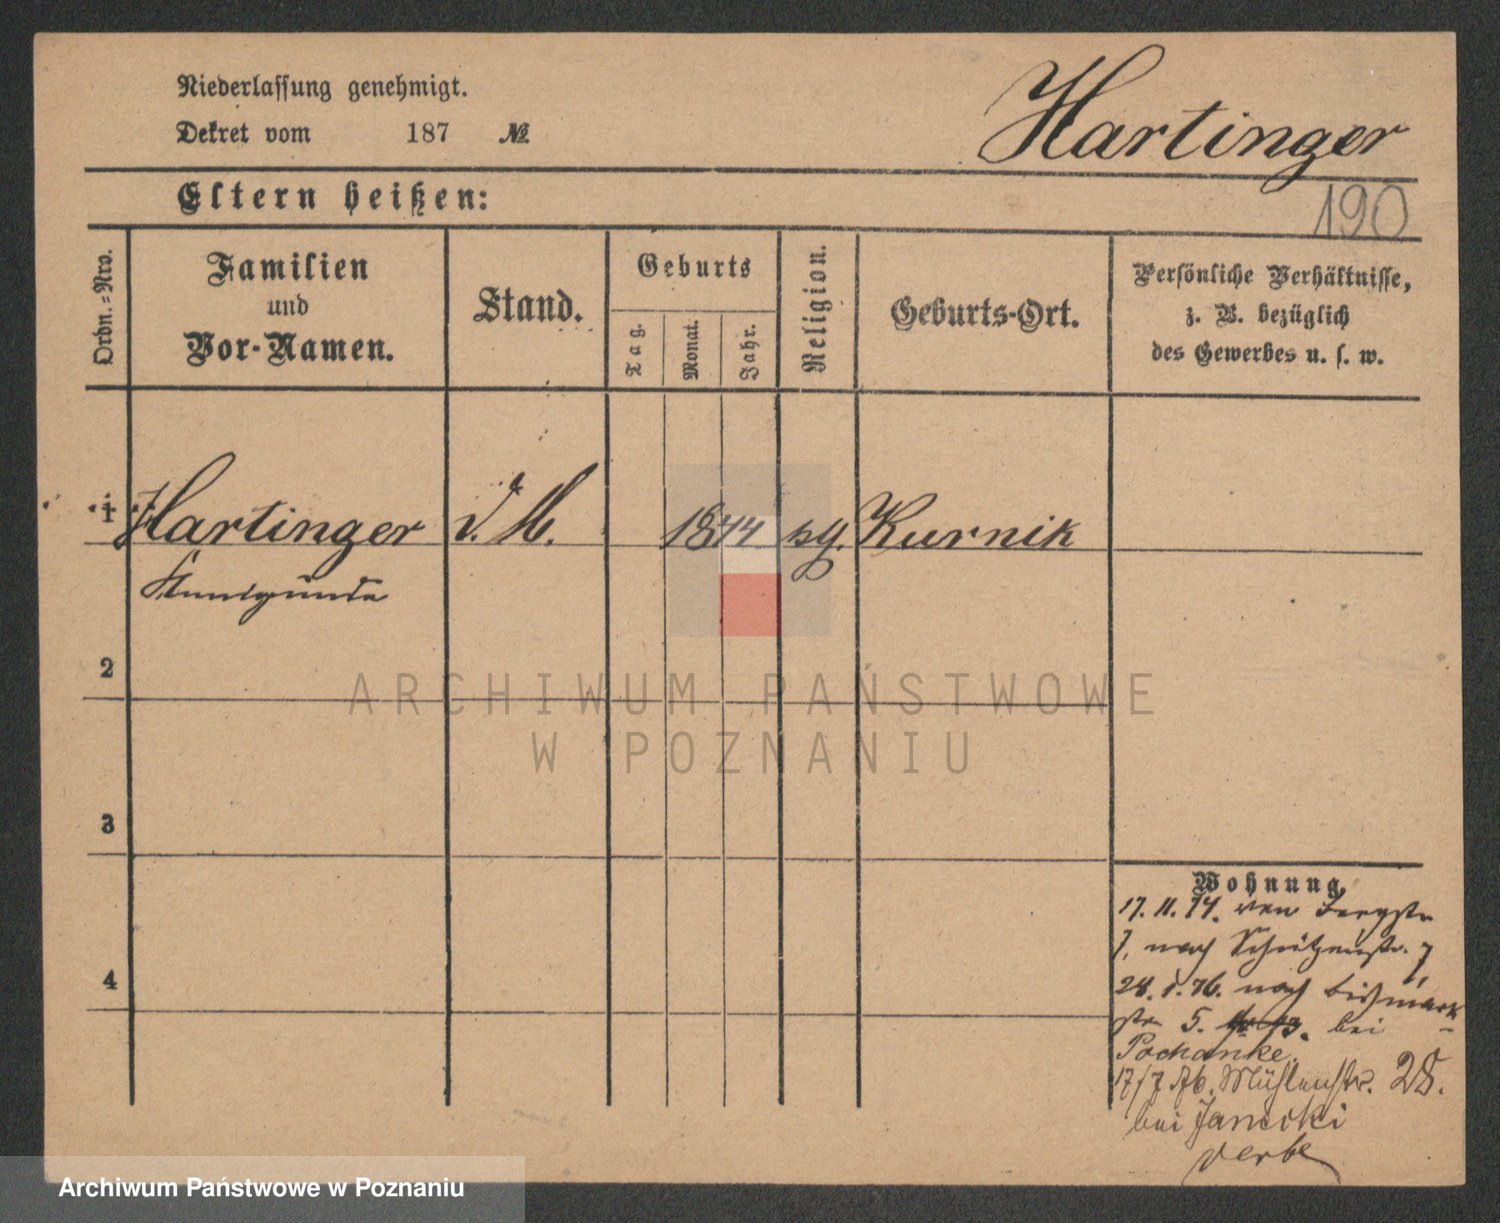 Niederlassung genehmigt.
Dekret vom 187 №
Hartinger
190
Eltern heißen:
Ordn.-Nro.
Familien
und
Vor-Namen.
Stand.
Geburts
Tag.
Monat.
Jahr.
Religion.
Geburts-Ort.
Persönliche Verhältnisse,
z. B. bezüglich
des Gewerbes u. s. w.
1 Hartinger d. M. 1844 kg. Kurnik
Kunigunde
2
ARCHIWUM PAŃSTWOWE
W POZNANIU
3
Wohnung.
17. 11. 74. von Bergstr
7, nach Schützenstr. 7
28. 1. 76. nach Bismark-
str 5. bei
Pochanke.
17/7 76. Mühlenstr. 28.
bei Janicki
Archiwum Państwowe w Poznaniu
4